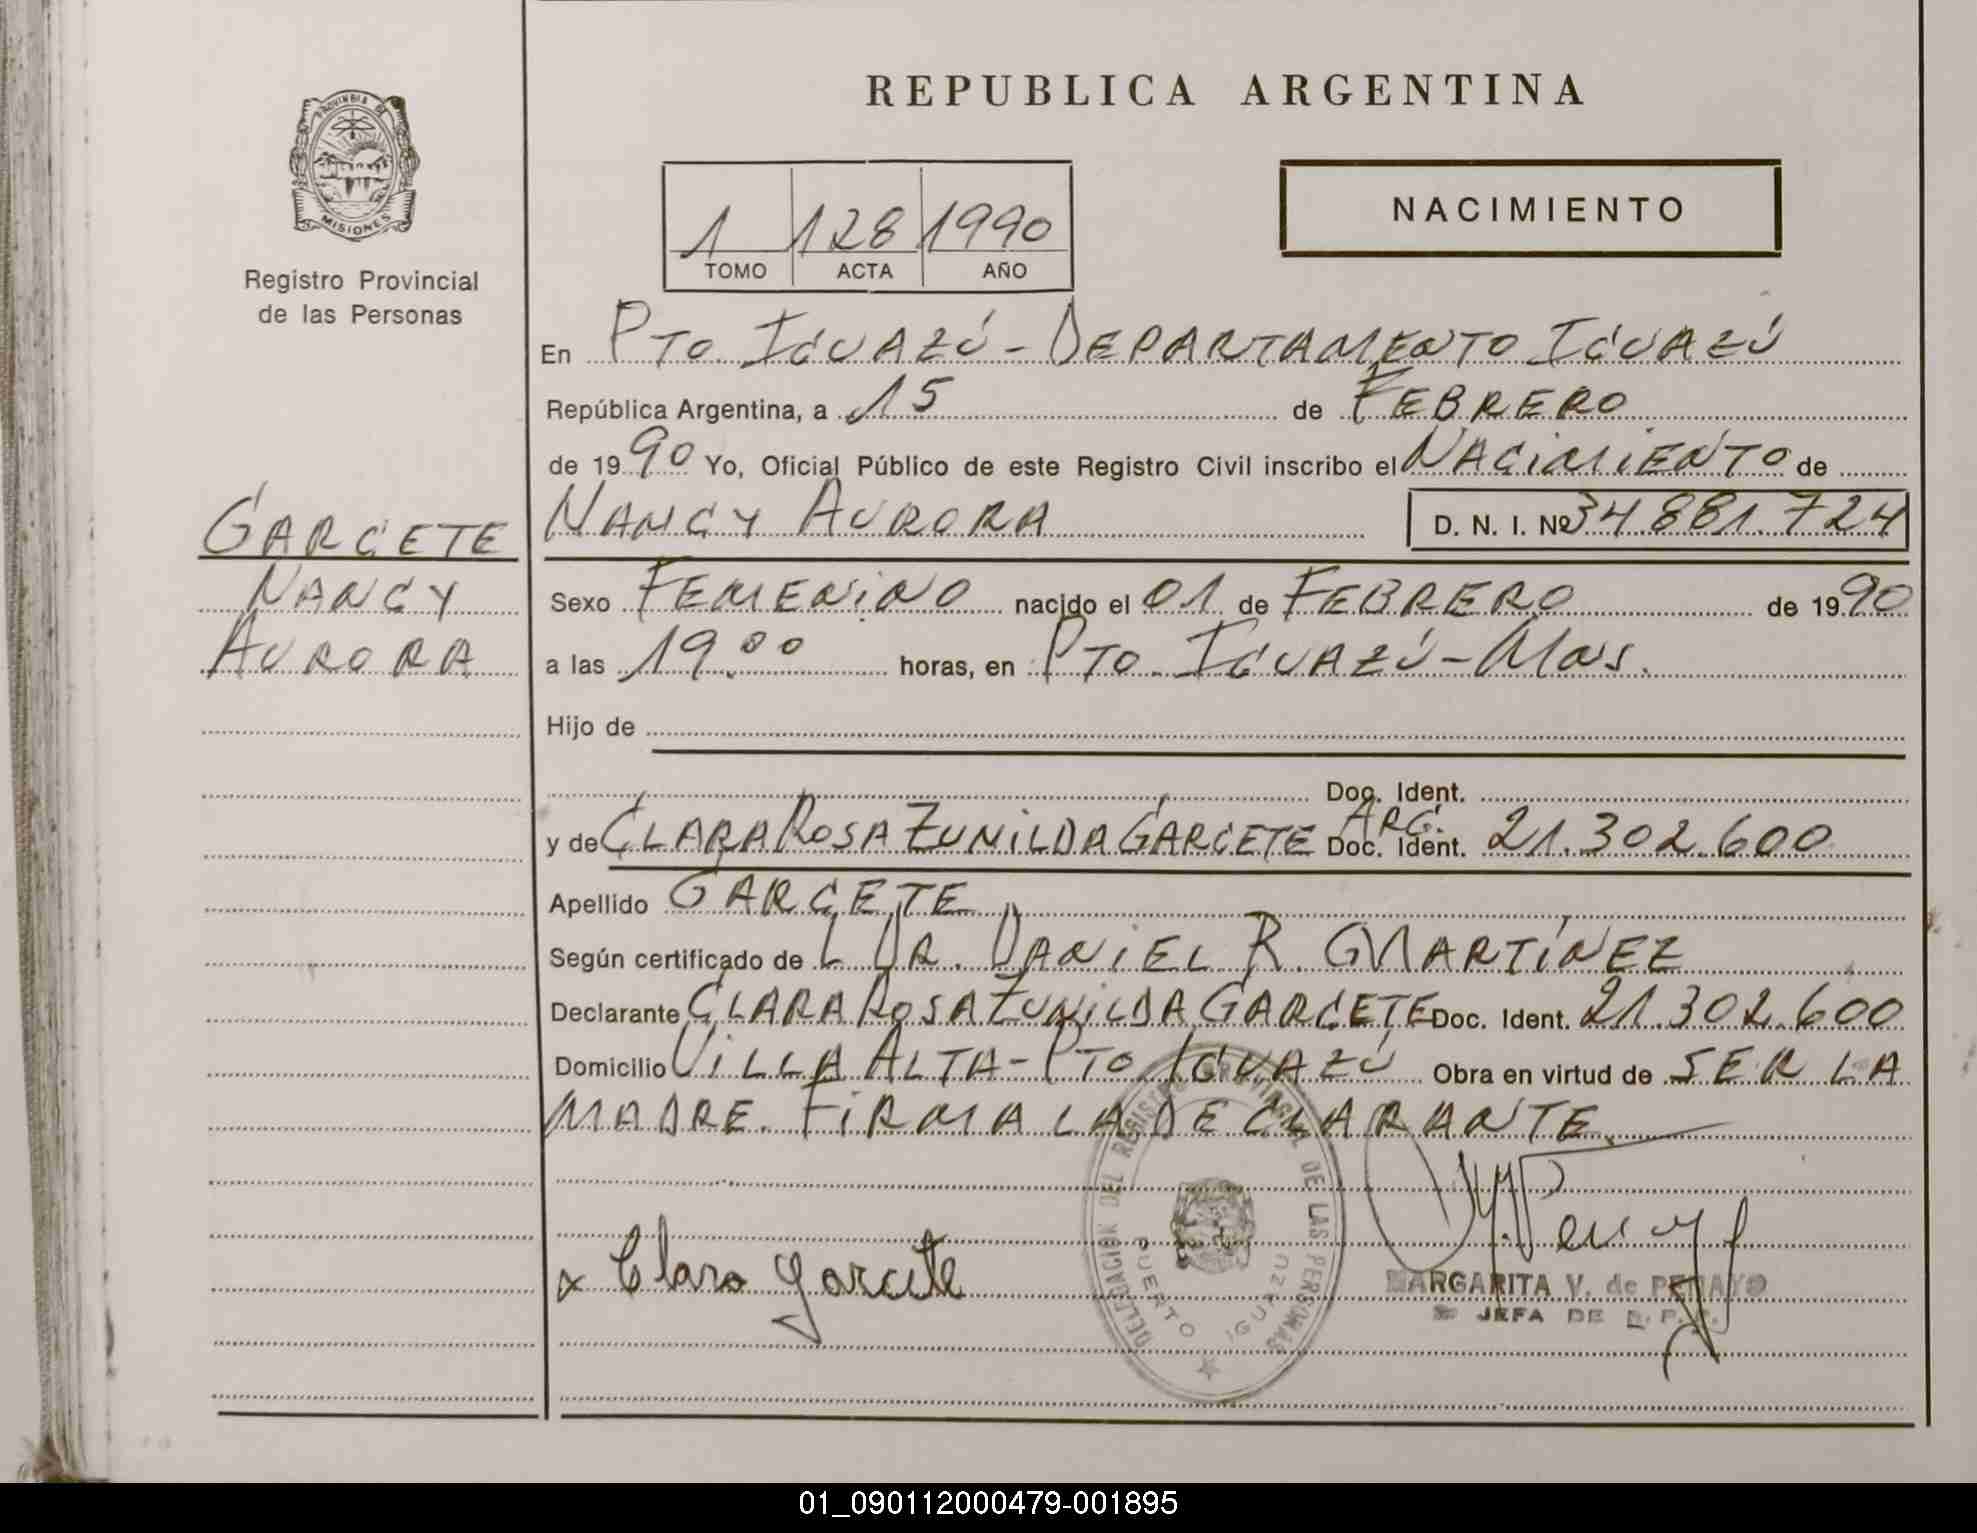 REPUBLICA ARGENTINA
PROVINCIA DE
MISIONES
Registro Provincial
de las Personas
1 128 1990
TOMO ACTA AÑO
NACIMIENTO
En PTO. IGUAZÚ - DEPARTAMENTO IGUAZÚ
República Argentina, a 15 de FEBRERO
de 1990 Yo, Oficial Público de este Registro Civil inscribo el NACIMIENTO de
NANCY AURORA D. N. I. Nº 34.881.724
GARCETE
NANCY
AURORA
Sexo FEMENINO nacido el 01 de FEBRERO de 1990
a las 19.00 horas, en PTO. IGUAZÚ - Mns.
Hijo de
Doc. Ident.
y de CLARA ROSA ZUNILDA GARCETE ARG. Doc. Ident. 21.302.600
Apellido GARCETE
Según certificado de L DR. DANIEL R. MARTÍNEZ
Declarante CLARA ROSA ZUNILDA GARCETE Doc. Ident. 21.302.600
Domicilio VILLA ALTA - PTO IGUAZÚ Obra en virtud de SER LA
MADRE. FIRMA LA DECLARANTE.
DELEGACION DEL REGISTRO PROVINCIAL DE LAS PERSONAS
PUERTO IGUAZU
x Clara Garcete
MARGARITA V. de PENAYO
JEFA DE
01_090112000479-001895